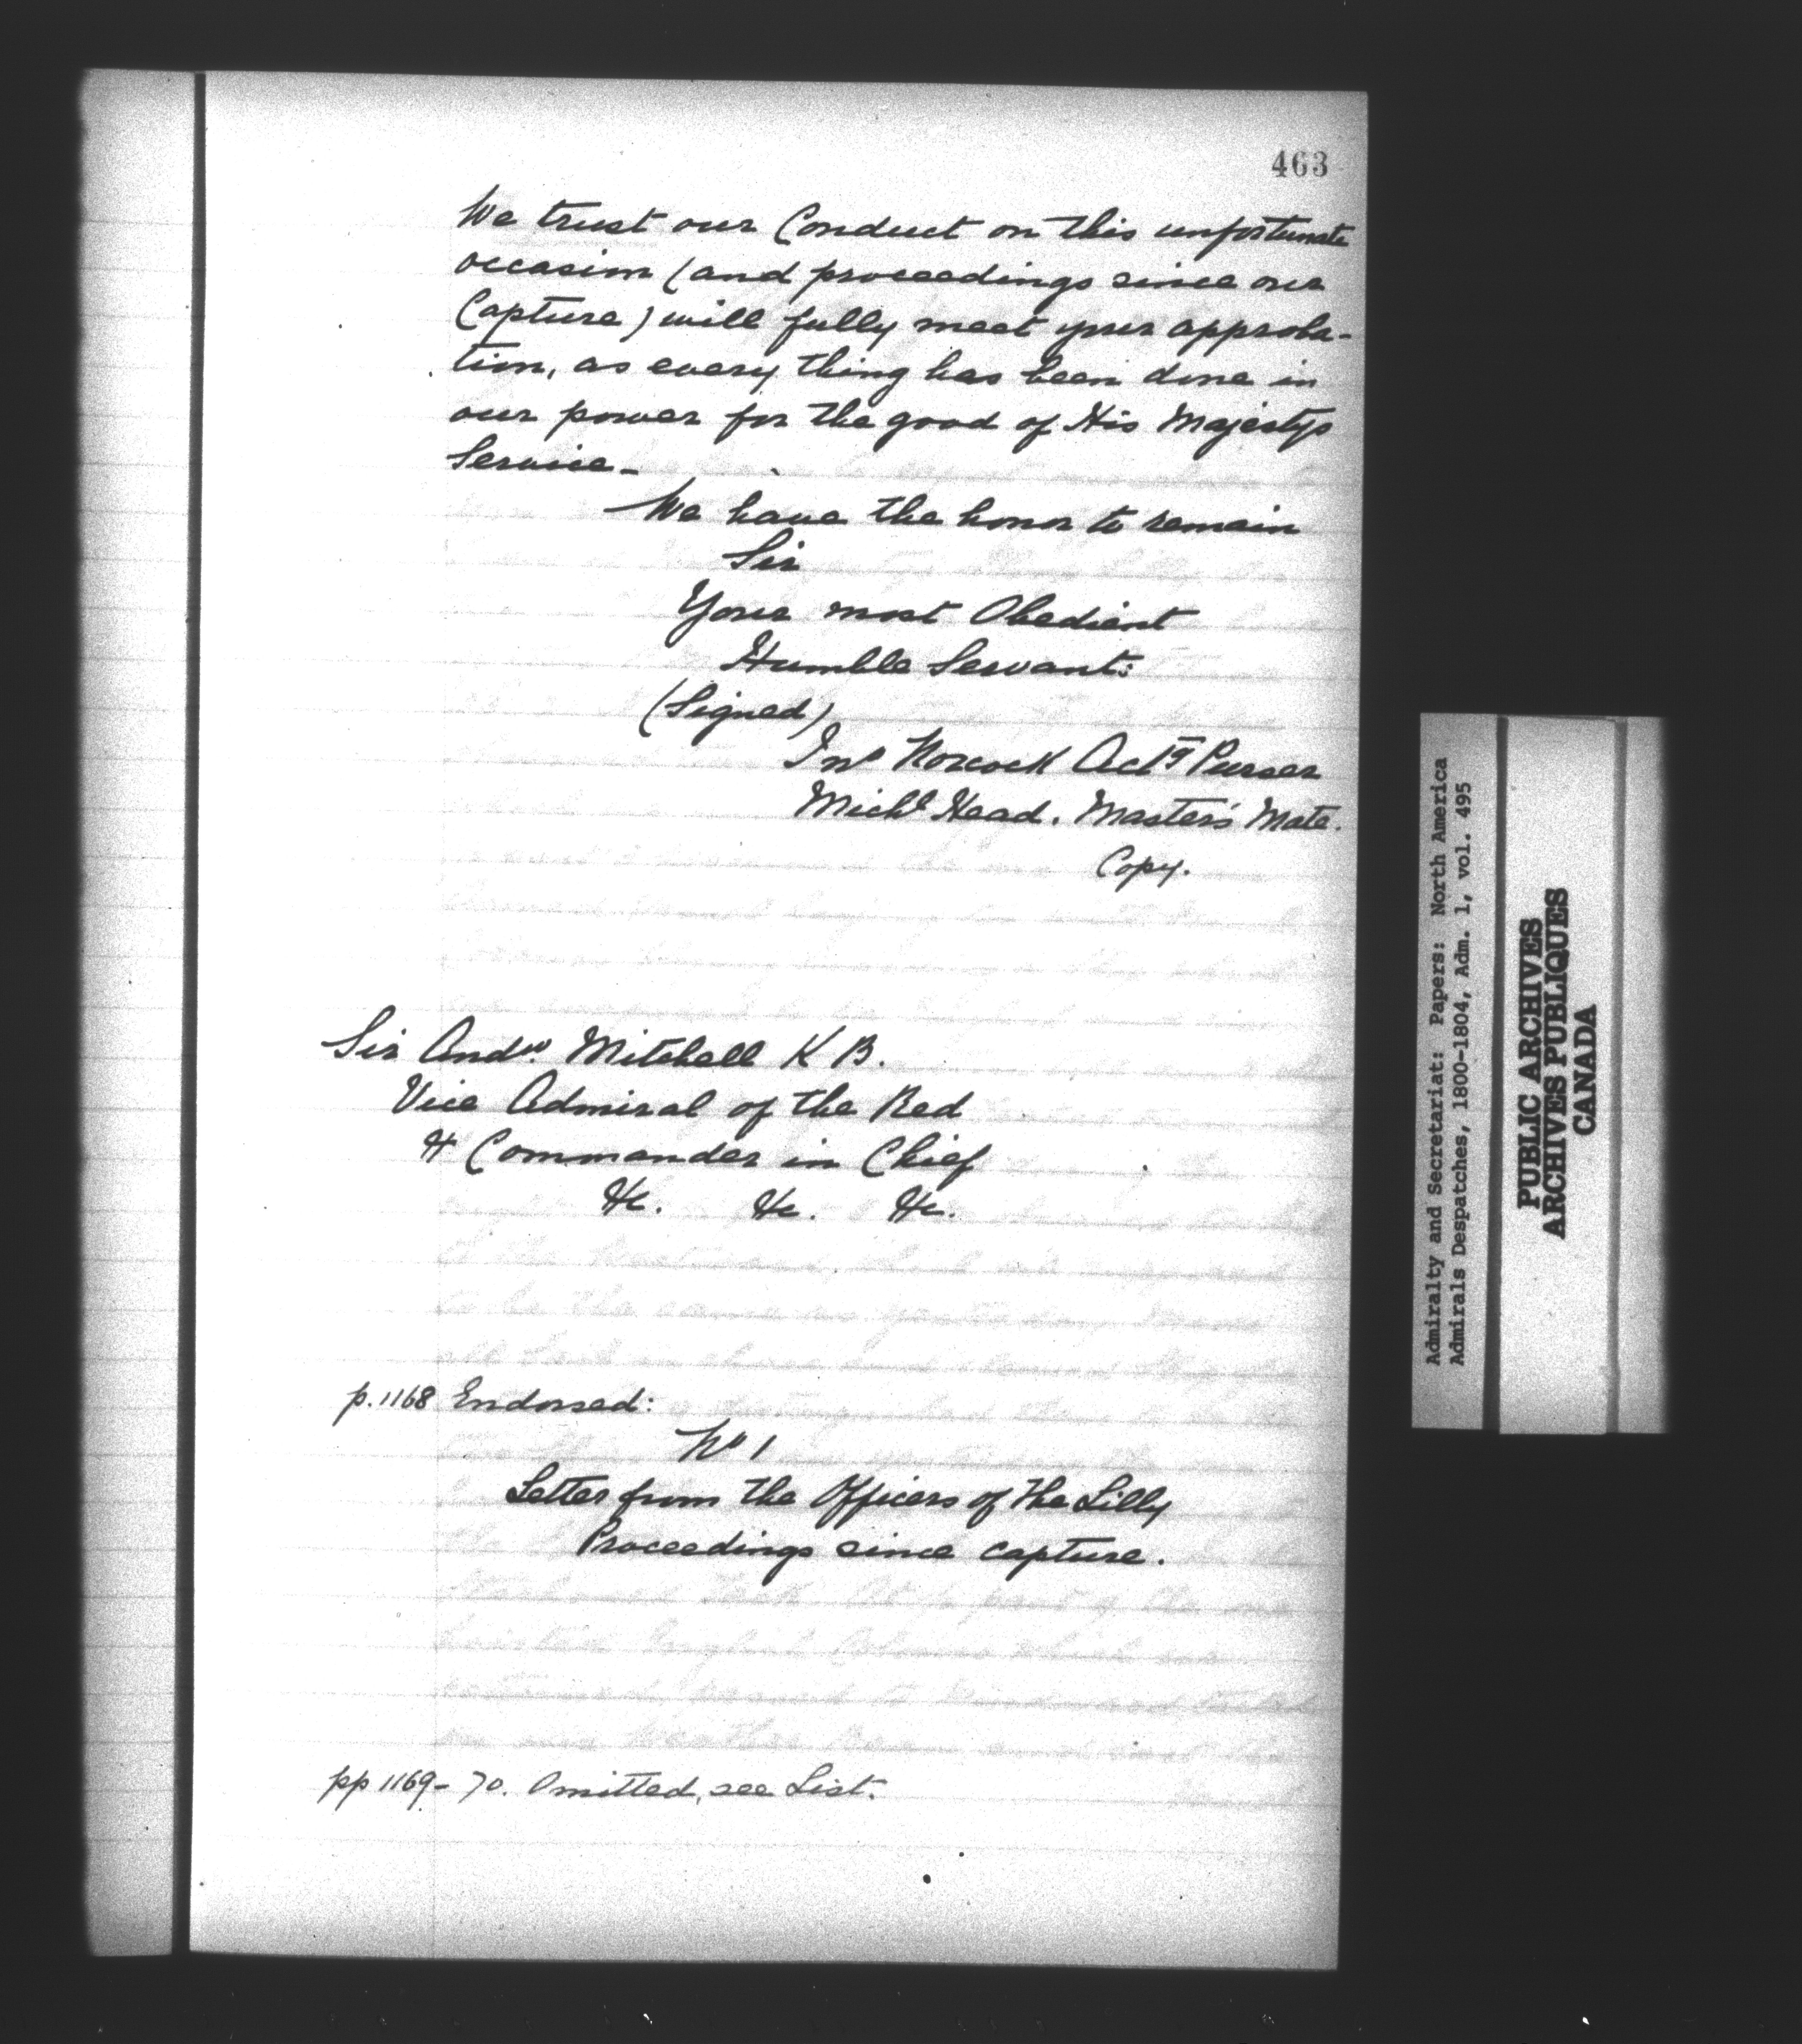 463
We trust our Conduct on this unfortunate
occasion (and proceedings since our
Capture) will fully meet your approba-
tion, as every thing has been done in
our power for the good of His Majestys
Service_
We have the honor to remain
Sir
Your most Obedient
Humble Servants
(Signed)
Jno Norcock Actg Purser
Michl Head. Master's Mate.
Copy.
Sir Andw. Mitchell K B.
Vice Admiral of the Red
& Commander in Chief
&c. &c. &c.
p. 1168 Endorsed:
No 1
Letter from the Officers of the Lilly
Proceedings since capture.
pp 1169-70. Omitted, see List.
Admiralty and Secretariat: Papers: North America
Admirals Despatches, 1800-1804, Adm. 1, vol. 495
PUBLIC ARCHIVES
ARCHIVES PUBLIQUES
CANADA